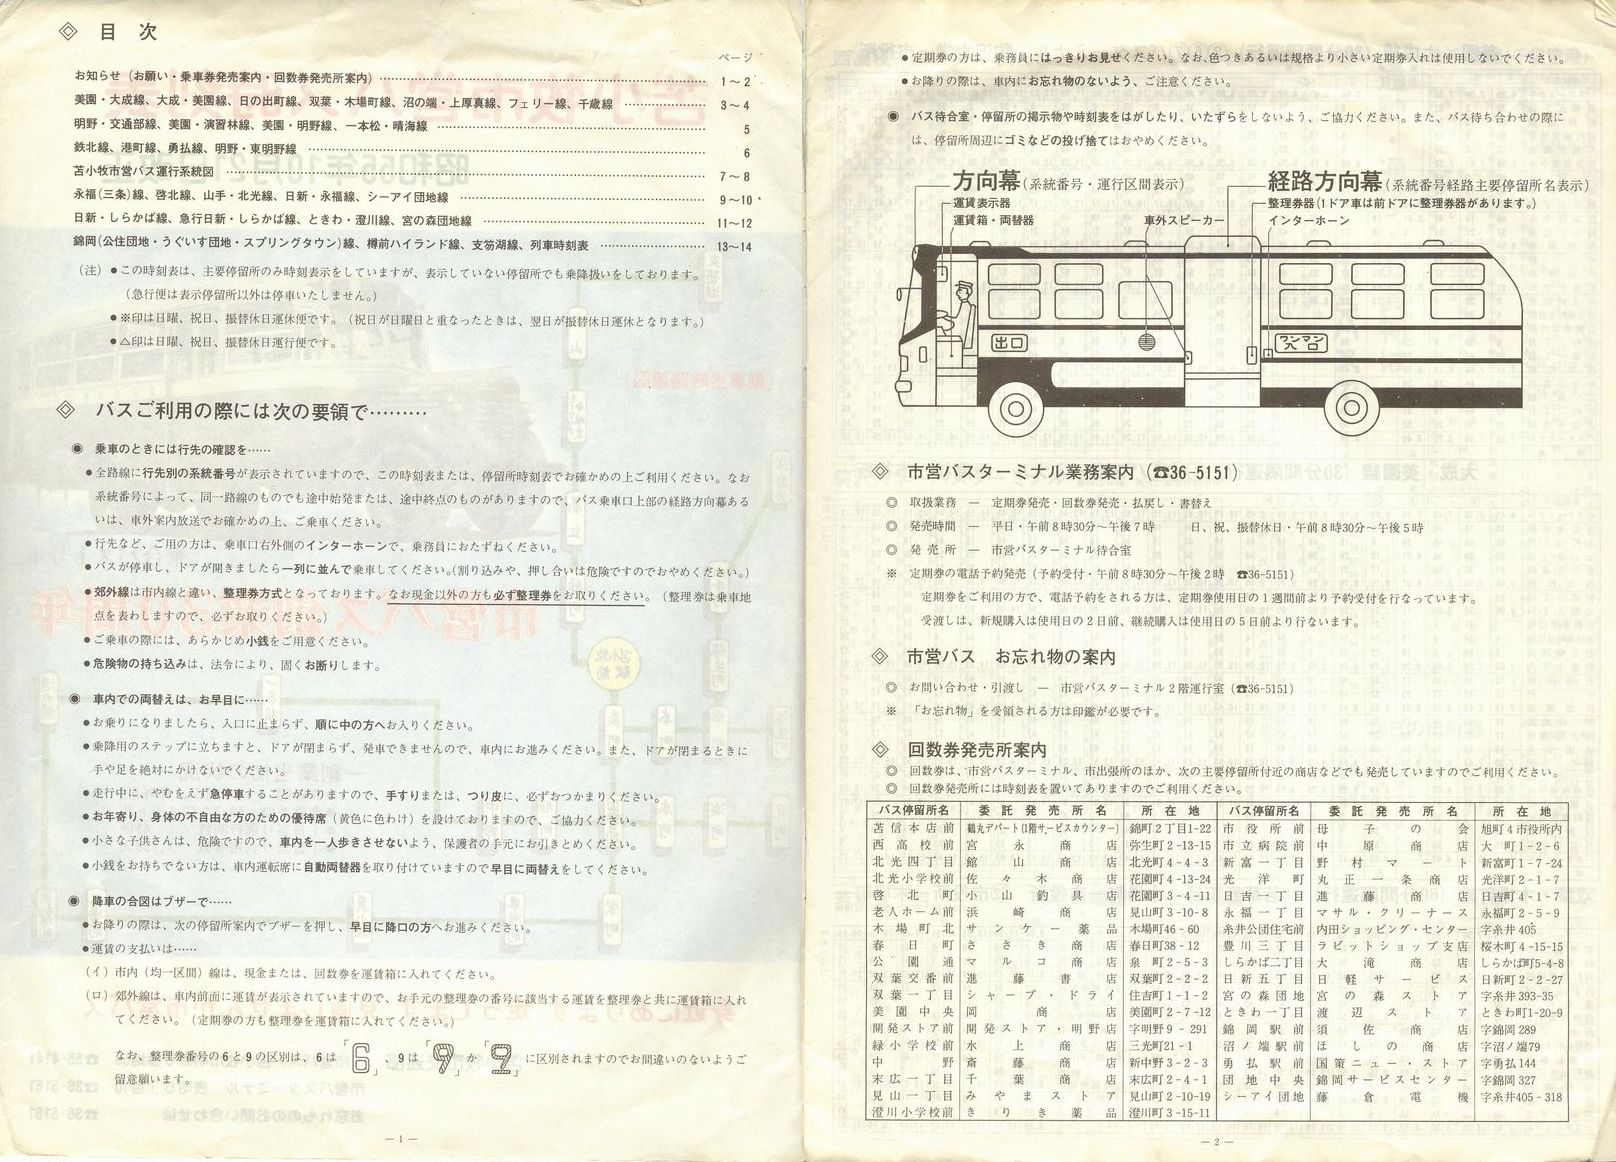 ◈ 目次
ページ
お知らせ（お願い・乗車券発売案内・回数券発売所案内）………1～2
美園・大成線、大成・美園線、日の出町線、双葉・木場町線、沼の端・上厚真線、フェリー線、千歳線………3～4
明野・交通部線、美園・演習林線、美園・明野線、一本松・晴海線………5
鉄北線、港町線、勇払線、明野・東明野線………6
苫小牧市営バス運行系統図………7～8
永福（三条）線、啓北線、山手・北光線、日新・永福線、シーアイ団地線………9～10
日新・しらかば線、急行日新・しらかば線、ときわ・澄川線、宮の森団地線………11～12
錦岡（公住団地・うぐいす団地・スプリングタウン）線、樽前ハイランド線、支笏湖線、列車時刻表………13～14
（注）●この時刻表は、主要停留所のみ時刻表示をしていますが、表示していない停留所でも乗降扱いをしております。
（急行便は表示停留所以外は停車いたしません。）
●※印は日曜、祝日、振替休日運休便です。（祝日が日曜日と重なったときは、翌日が振替休日運休となります。）
●△印は日曜、祝日、振替休日運行便です。
◈ バスご利用の際には次の要領で………
◉ 乗車のときには行先の確認を……
●全路線に行先別の系統番号が表示されていますので、この時刻表または、停留所時刻表でお確かめの上ご利用ください。なお
系統番号によって、同一路線のものでも途中始発または、途中終点のものがありますので、バス乗車口上部の経路方向幕ある
いは、車外案内放送でお確かめの上、ご乗車ください。
●行先など、ご用の方は、乗車口右外側のインターホーンで、乗務員におたずねください。
●バスが停車し、ドアが開きましたら一列に並んで乗車してください。（割り込みや、押し合いは危険ですのでおやめください。）
●郊外線は市内線と違い、整理券方式となっております。なお現金以外の方も必ず整理券をお取りください。（整理券は乗車地
点を表わしますので、必ずお取りください。）
●ご乗車の際には、あらかじめ小銭をご用意ください。
●危険物の持ち込みは、法令により、固くお断りします。
◉ 車内での両替えは、お早目に……
●お乗りになりましたら、入口に止まらず、順に中の方へお入りください。
●乗降用のステップに立ちますと、ドアが閉まらず、発車できませんので、車内にお進みください。また、ドアが閉まるときに
手や足を絶対にかけないでください。
●走行中に、やむをえず急停車することがありますので、手すりまたは、つり皮に、必ずおつかまりください。
●お年寄り、身体の不自由な方のための優待席（黄色に色わけ）を設けておりますので、ご協力ください。
●小さな子供さんは、危険ですので、車内を一人歩きさせないよう、保護者の手元にお引きとめください。
●小銭をお持ちでない方は、車内運転席に自動両替器を取り付けていますので早目に両替えをしてください。
◉ 降車の合図はブザーで……
●お降りの際は、次の停留所案内でブザーを押し、早目に降口の方へお進みください。
●運賃の支払いは……
（イ）市内（均一区間）線は、現金または、回数券を運賃箱に入れてください。
（ロ）郊外線は、車内前面に運賃が表示されていますので、お手元の整理券の番号に該当する運賃を整理券と共に運賃箱に入れ
てください。（定期券の方も整理券を運賃箱に入れてください。）
なお、整理券番号の6と9の区別は、6は「6」、9は「9」か「9」に区別されますのでお間違いのないようご
留意願います。
— 1 —
●定期券の方は、乗務員にはっきりお見せください。なお、色つきあるいは規格より小さい定期券入れは使用しないでください。
●お降りの際は、車内にお忘れ物のないよう、ご注意ください。
◉ バス待合室・停留所の掲示物や時刻表をはがしたり、いたずらをしないよう、ご協力ください。また、バス待ち合わせの際に
は、停留所周辺にゴミなどの投げ捨てはおやめください。
方向幕（系統番号・運行区間表示）
経路方向幕（系統番号経路主要停留所名表示）
運賃表示器
整理券器（1ドア車は前ドアに整理券器があります。）
運賃箱・両替器
車外スピーカー
インターホーン
出口
ワンマン入口
◈ 市営バスターミナル業務案内（☎36-5151）
◎ 取扱業務 — 定期券発売・回数券発売・払戻し・書替え
◎ 発売時間 — 平日・午前8時30分～午後7時 日、祝、振替休日・午前8時30分～午後5時
◎ 発売所 — 市営バスターミナル待合室
※ 定期券の電話予約発売（予約受付・午前8時30分～午後2時 ☎36-5151）
定期券をご利用の方で、電話予約をされる方は、定期券使用日の1週間前より予約受付を行なっています。
受渡しは、新規購入は使用日の2日前、継続購入は使用日の5日前より行ないます。
◈ 市営バス お忘れ物の案内
◎ お問い合わせ・引渡し — 市営バスターミナル2階運行室（☎36-5151）
※ 「お忘れ物」を受領される方は印鑑が必要です。
◈ 回数券発売所案内
◎ 回数券は、市営バスターミナル、市出張所のほか、次の主要停留所付近の商店などでも発売していますのでご利用ください。
◎ 回数券発売所には時刻表を置いてありますのでご利用ください。
バス停留所名 委託発売所名 所在地 バス停留所名 委託発売所名 所在地
苫信本店前 鶴丸デパート（1階サービスカウンター） 錦町2丁目1-22 市役所前 母子の会 旭町4市役所内
西高校前 宮永商店 弥生町2-13-15 市立病院前 中原商店 大町1-2-6
北光四丁目 館山商店 北光町4-4-3 新富一丁目 野村マート 新富町1-7-24
北光小学校前 佐々木商店 花園町4-13-24 光洋町 丸正一条商店 光洋町2-1-7
啓北町 小山釣具店 花園町3-4-11 日吉一丁目 進藤商店 日吉町4-1-7
老人ホーム前 浜崎商店 見山町3-10-8 永福一丁目 マサル・クリーナース 永福町2-5-9
木場町北 サンケー薬品 木場町46-60 糸井公団住宅前 内田ショッピング・センター 字糸井405
春日町 ささき商店 春日町38-12 豊川三丁目 ラビットショップ支店 桜木町4-15-15
公園通 マルコ商店 泉町2-5-3 しらかば二丁目 大滝商店 しらかば町5-4-8
双葉交番前 進藤書店 双葉町2-2-2 日新五丁目 日軽サービス 日新町2-2-27
双葉一丁目 シャープ・ドライ 住吉町1-1-2 宮の森団地 宮の森ストア 字糸井393-35
美園中央 岡商店 美園町2-7-12 ときわ一丁目 渡辺ストア ときわ町1-20-9
開発ストア前 開発ストア・明野店 字明野9-291 錦岡駅前 須佐商店 字錦岡289
緑小学校前 水上商店 三光町21-1 沼ノ端駅前 ほしの商店 字沼ノ端79
中野 斎藤商店 新中野3-2-3 勇払駅前 国策ニュー・ストア 字勇払144
末広一丁目 千葉商店 末広町2-4-1 団地中央 錦岡サービスセンター 字錦岡327
見山一丁目 みやまストア 見山町2-10-19 シーアイ団地 藤倉電機 字糸井405-318
澄川小学校前 きりき薬品 澄川町3-15-11
— 2 —